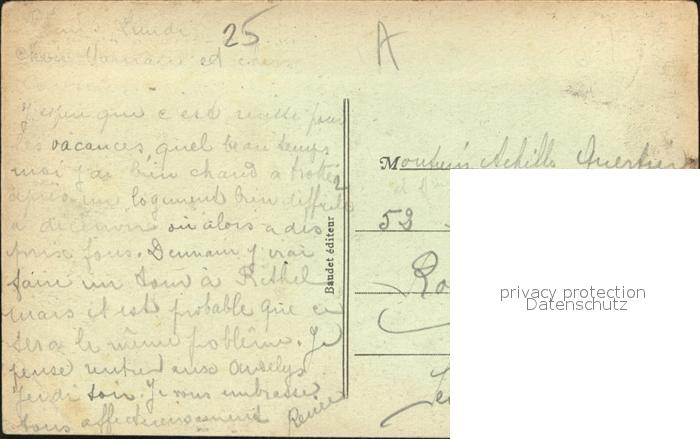 Lundi
25
A
Chers et chers
J'espère que c'est réussi pour
les vacances quel beau temps
moi j'ai bien chaud a trotter
après un logement bien difficile
a découvrir ou alors a des
prix fous. Demain j'irai
faire un tour à Rethel
mais il est probable que ce
sera le même poblême. Je
pense rentrer aux Andelys
Jeudi soir. Je vous embrasse
tous affectueusement Renée
Baudet éditeur
Monsieur Achille
et
53
Ro
privacy protection
Datenschutz